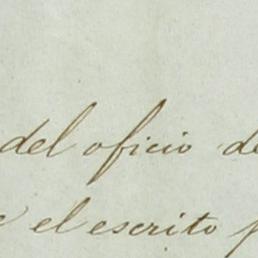 del oficio de
el escrito